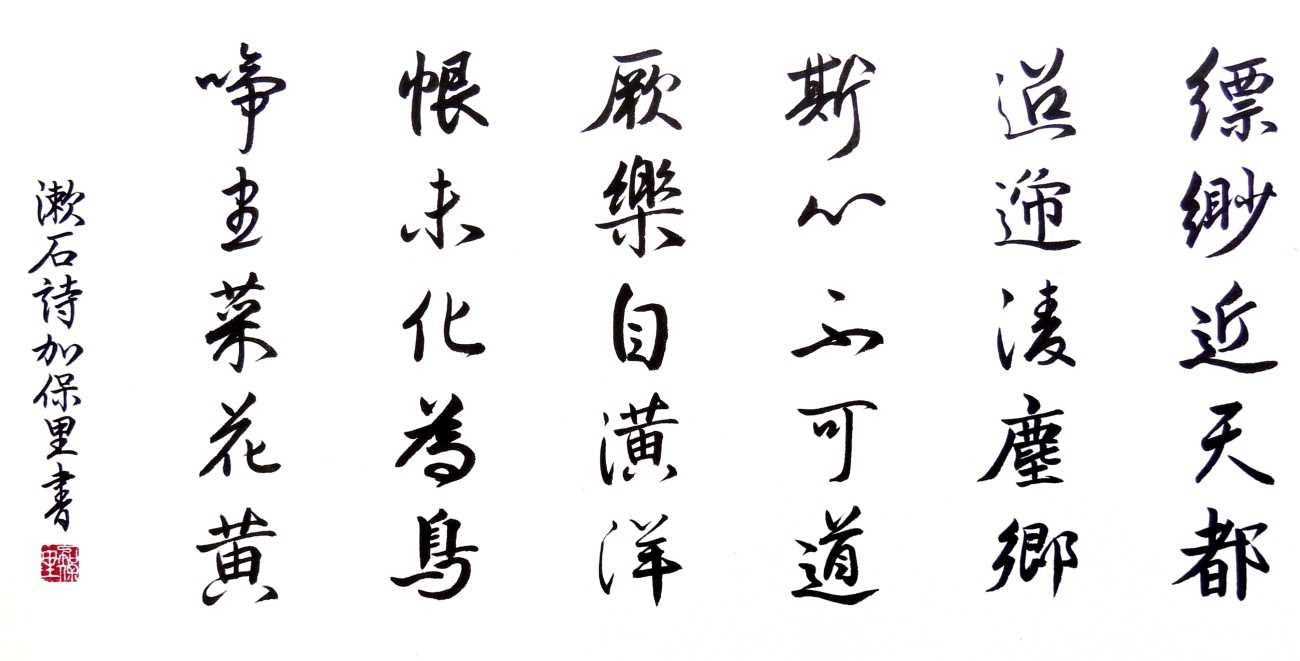 縹緲近天都
迢遞淩塵郷
斯心不可道
厥樂自潢洋
恨未化為鳥
啼盡菜花黄
漱石詩加保里書